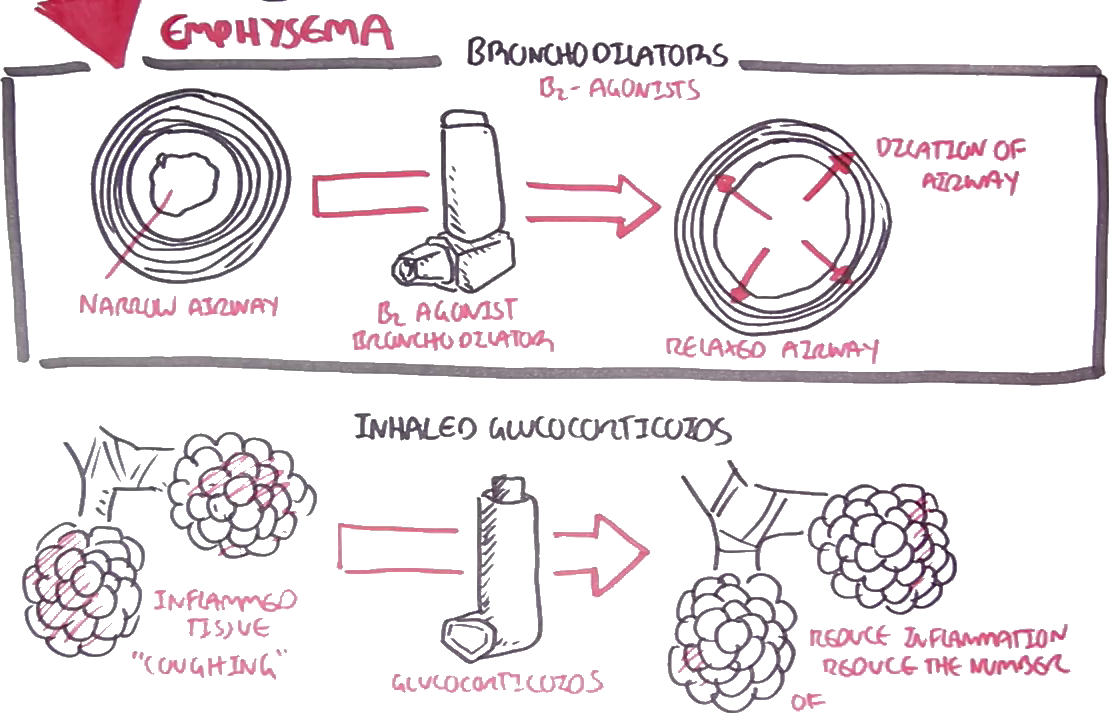 EMPHYSEMA
BRONCHODILATORS
B2 - AGONISTS
DILATION OF
AIRWAY
NARROW AIRWAY
B2 AGONIST
BRONCHODILATOR
RELAXED AIRWAY
INHALED GLUCOCORTICOIDS
INFLAMMED
TISSUE
"COUGHING"
GLUCOCORTICOIDS
REDUCE INFLAMMATION
REDUCE THE NUMBER
OF